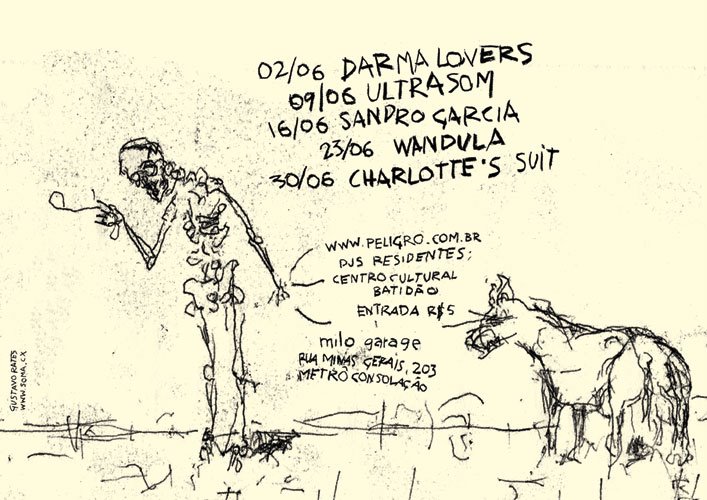 02/06 DARMA LOVERS
09/06 ULTRASOM
16/06 SANDRO GARCIA
23/06 WANDULA
30/06 CHARLOTTE'S SUIT
WWW.PELIGRO.COM.BR
DJS RESIDENTES:
CENTRO CULTURAL
BATIDÃO
ENTRADA R$5
milo garage
RUA MINAS GERAIS, 203
METRÔ CONSOLAÇÃO
GUSTAVO RATES
WWW.SOMA.CX